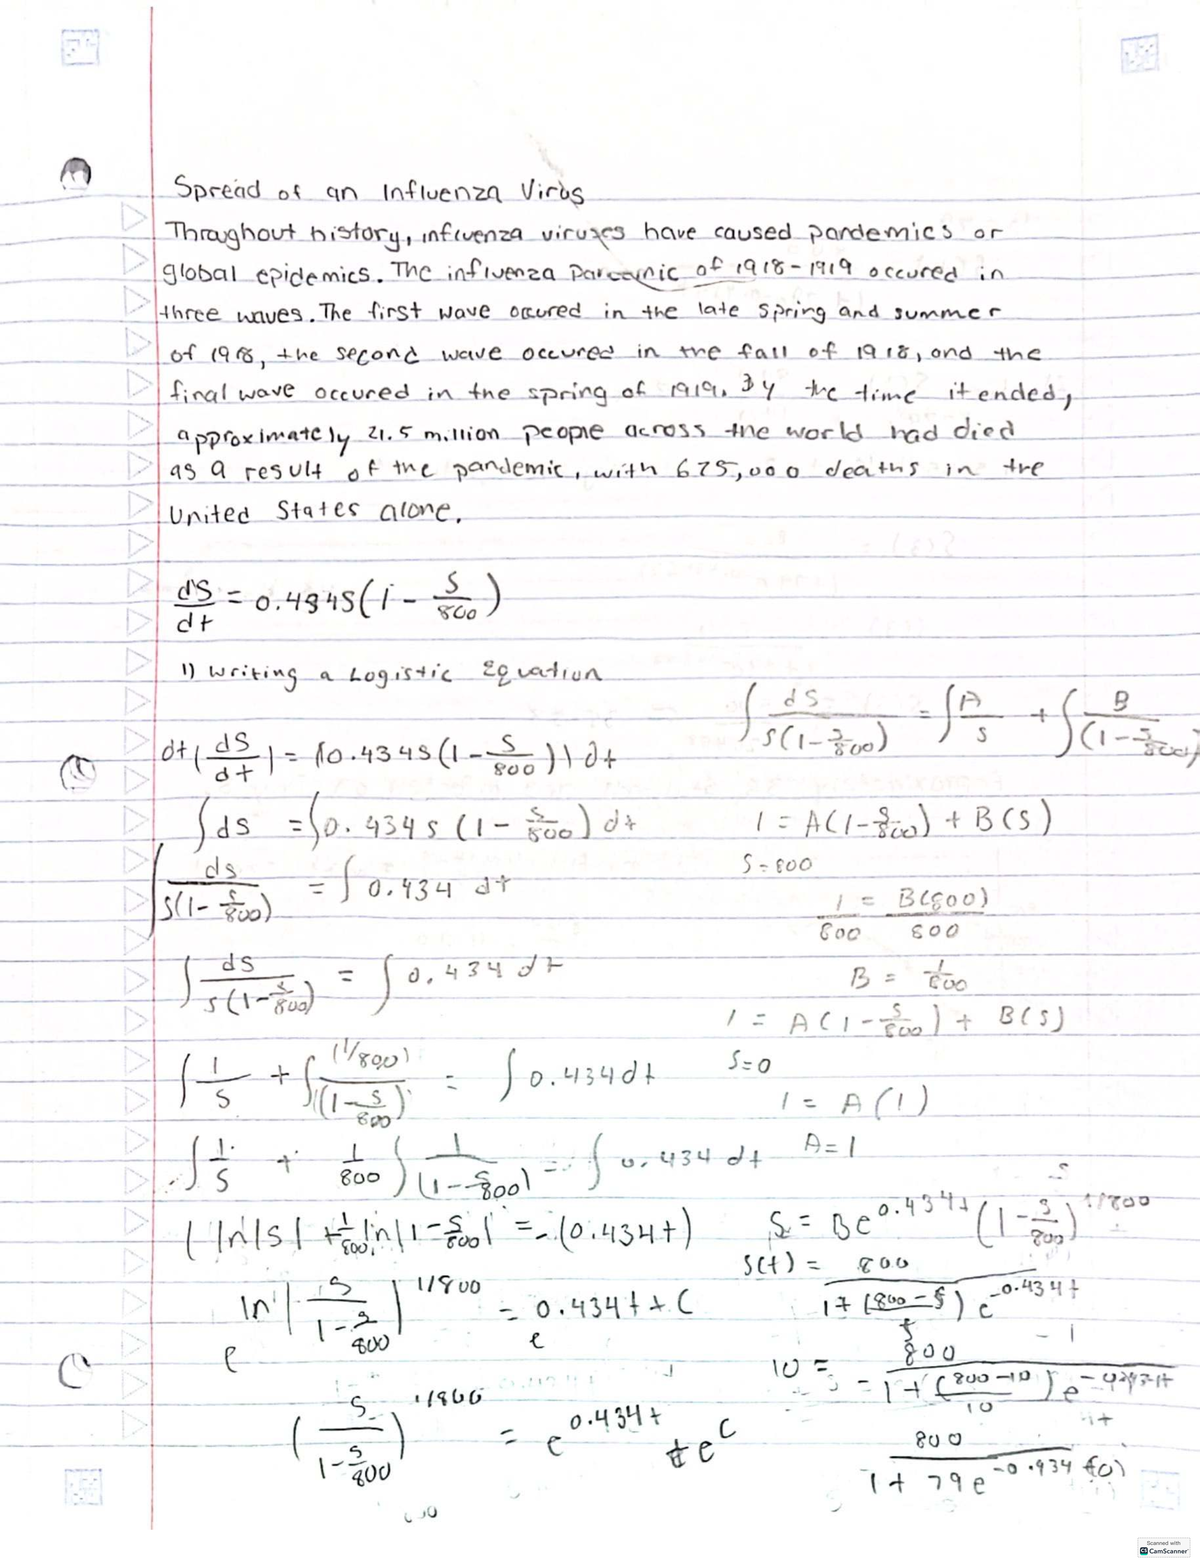 Spread of an Influenza Virus
Throughout history, influenza viruses have caused pandemics or
global epidemics. The influenza Pandemic of 1918-1919 occured in
three waves. The first wave occured in the late spring and summer
of 1918, the second wave occured in the fall of 1918, and the
final wave occured in the spring of 1919. By the time it ended,
approximately 21.5 million people across the world had died
as a result of the pandemic, with 675,000 deaths in the
United States alone.
dS/dt = 0.434S(1 - S/800)
1) Writing a Logistic Equation
∫ dS/S(1-S/800) = ∫ A/S + ∫ B/(1-S/800)
dt(dS/dt) = (0.434S(1-S/800)) dt
∫ds = ∫0.434S(1-S/800) dt
1 = A(1-S/800) + B(S)
S=800
∫ ds/S(1-S/800) = ∫ 0.434 dt
1/800 = B(800)/800
∫ ds/S(1-S/800) = ∫ 0.434 dt
B = 1/800
1 = A(1-S/800) + B(S)
∫ 1/S + ∫ (1/800)/(1-S/800) = ∫ 0.434 dt
S=0
1 = A(1)
∫ 1/S + 1/800 ∫ 1/(1-S/800) = ∫ 0.434 dt
A=1
ln|S| + 1/800 ln|1-S/800| = (0.434t)
S = Be^0.434t (1-S/800)^1/800
S(t) = 800/1+(800-S/S)e^-0.434t
e^ln|S/1-S/800|^1/800 = e^0.434t + C
10 = 800/1+(800-10/10)e
(S/1-S/800)^1/800 = e^0.434t ± e^C
800/1+79e^-0.434(0)
Scanned with
CS CamScanner